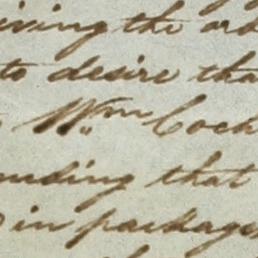 iving the ord
to desire tha
Wm Coch
nding that
in packages